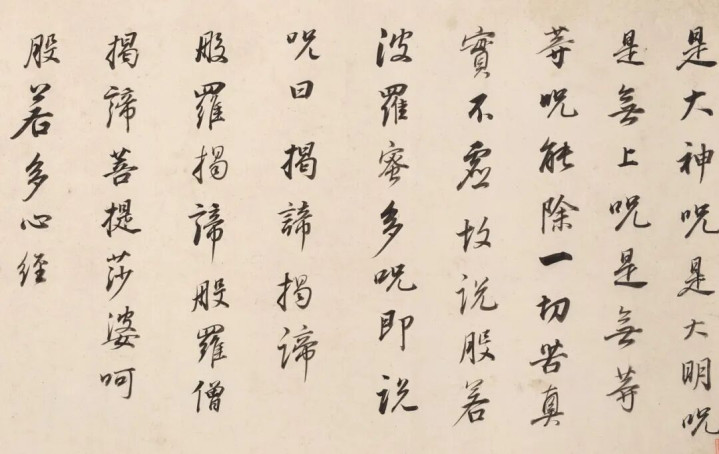 是大神咒是大明咒
是無上咒是無等
等咒能除一切苦真
實不虛故說般若
波羅蜜多咒即說
咒曰揭諦揭諦
般羅揭諦般羅僧
揭諦菩提莎婆呵
般若多心經